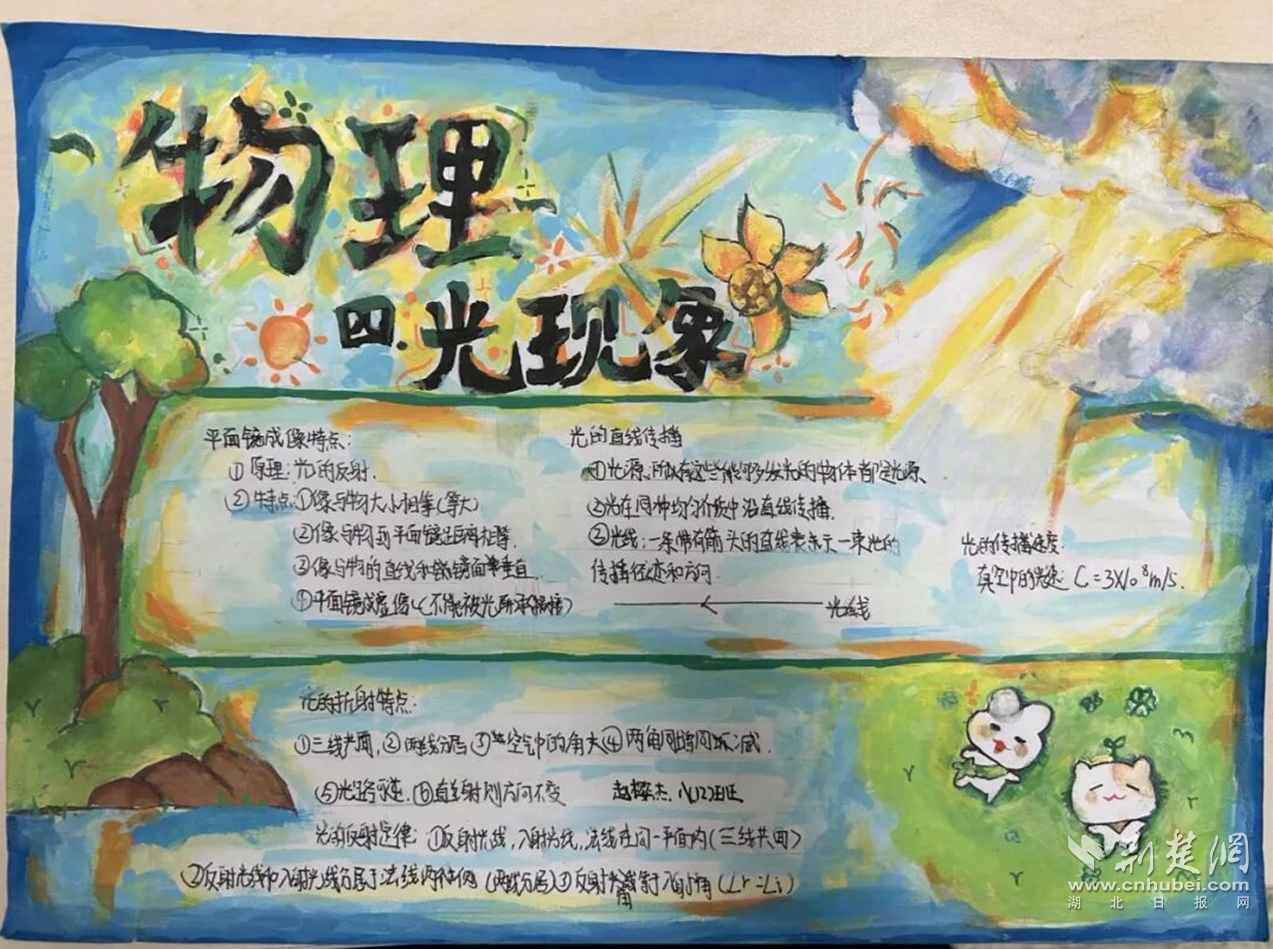 物理
四.光现象
平面镜成像特点:
①原理:光的反射.
②特点:①像与物大小相等(等大)
②像与物到平面镜距离相等.
③像与物的直线和镜面垂直
④平面镜成虚像(不能被光屏承接)
光的直线传播
①光源:所有能够发光的物体都是光源
②光在同种均匀介质中沿直线传播.
③光线:一条带有箭头的直线表示一束光的
传播径迹和方向.
光线
光的传播速度:
真空中的光速:C=3X10⁸m/s.
光的折射特点:
①三线共面,②两线分居③空气中的角大④两角同增同减.
⑤光路可逆.⑥直射则方向不变
杰.八(2)班
光的反射定律:①反射光线,入射光线,法线在同一平面内(三线共面)
②反射光线和入射光线分居于法线两侧(两线分居)③反射角等于入射角(∠r=∠i)
荆楚网
www.cnhubei.com
湖北日报网